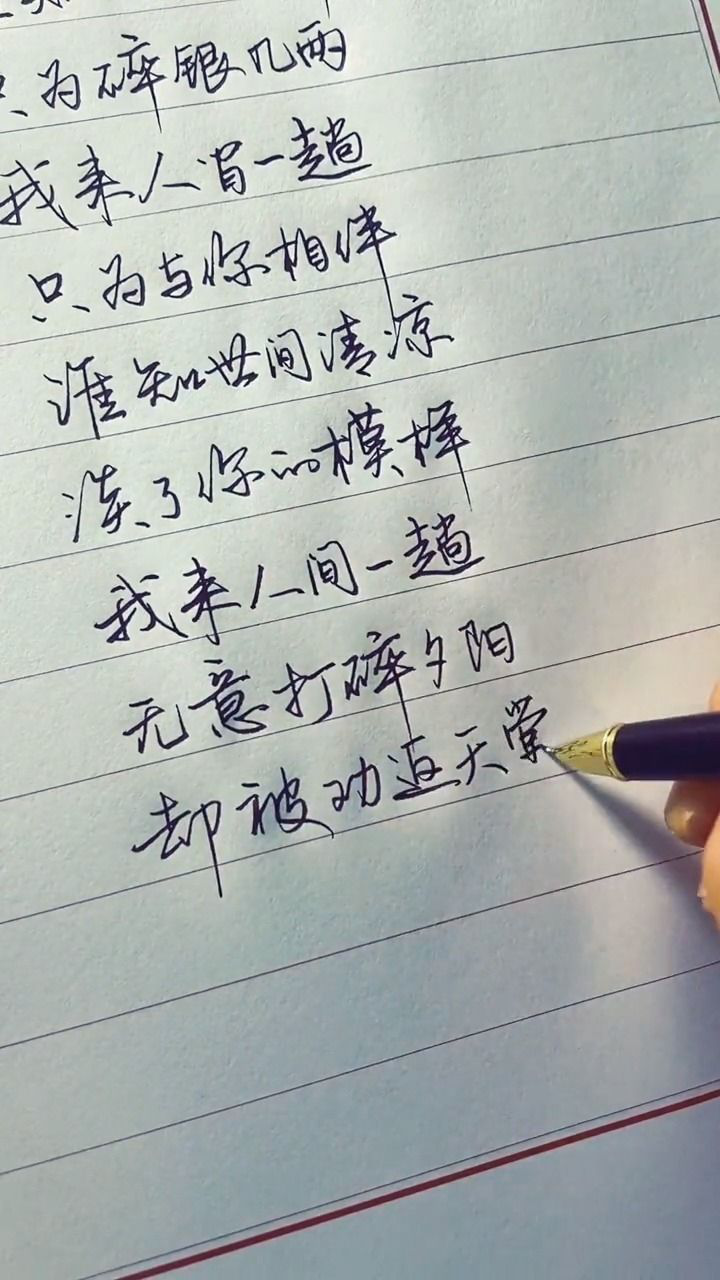 只为碎银几两
我来人间一趟
只为与你相伴
谁知世间清凉
淡了你的模样
我来人间一趟
无意打碎夕阳
却被劝返天堂